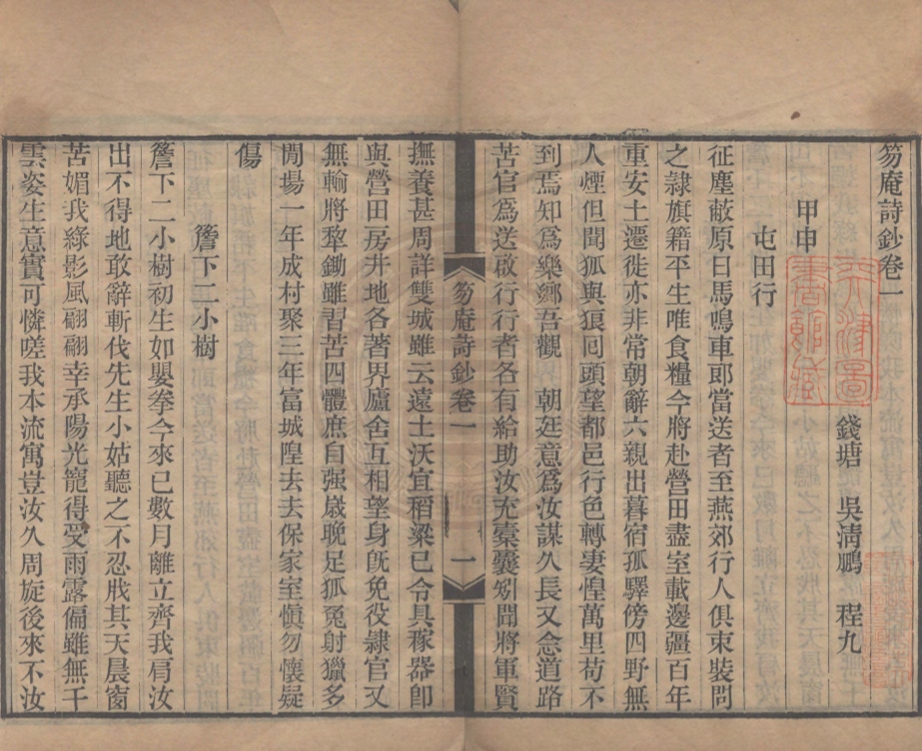 笏庵詩鈔卷一
錢塘 吳清鵬 程九
甲申
屯田行
征塵蔽原日馬鳴車耶當送者至燕郊行人俱束裝問
之隷旗籍平生唯食糧今將赴營田盡室載邊疆百年
重安土遷徙亦非常朝辭六親出暮宿孤驛傍四野無
人煙但聞狐與狼囘頭望都邑行色轉凄惶萬里苟不
到焉知爲樂鄉吾觀 朝廷意爲汝謀久長又念道路
苦官爲送啟行行者各有給助汝充橐囊矧聞將軍賢
笏庵詩鈔卷一
一
撫養甚周詳雙城雖云遠土沃宜稻粱已令具稼器卽
與營田房井地各著界廬舍互相望身旣免役隷官又
無輸將犂鋤雖習苦四體庶自强歲晚足狐兔射獵多
閒場一年成村聚三年富城隍去去保家室愼勿懷疑
傷
簷下二小樹
簷下二小樹初生如嬰拳今來已數月離立齊我肩汝
出不得地敢辭斬伐先生小姑聽之不忍戕其天晨窗
苦媚我綠影風翩翩幸承陽光寵得受雨露偏雖無干
雲姿生意實可憐嗟我本流寓豈汝久周旋後來不汝